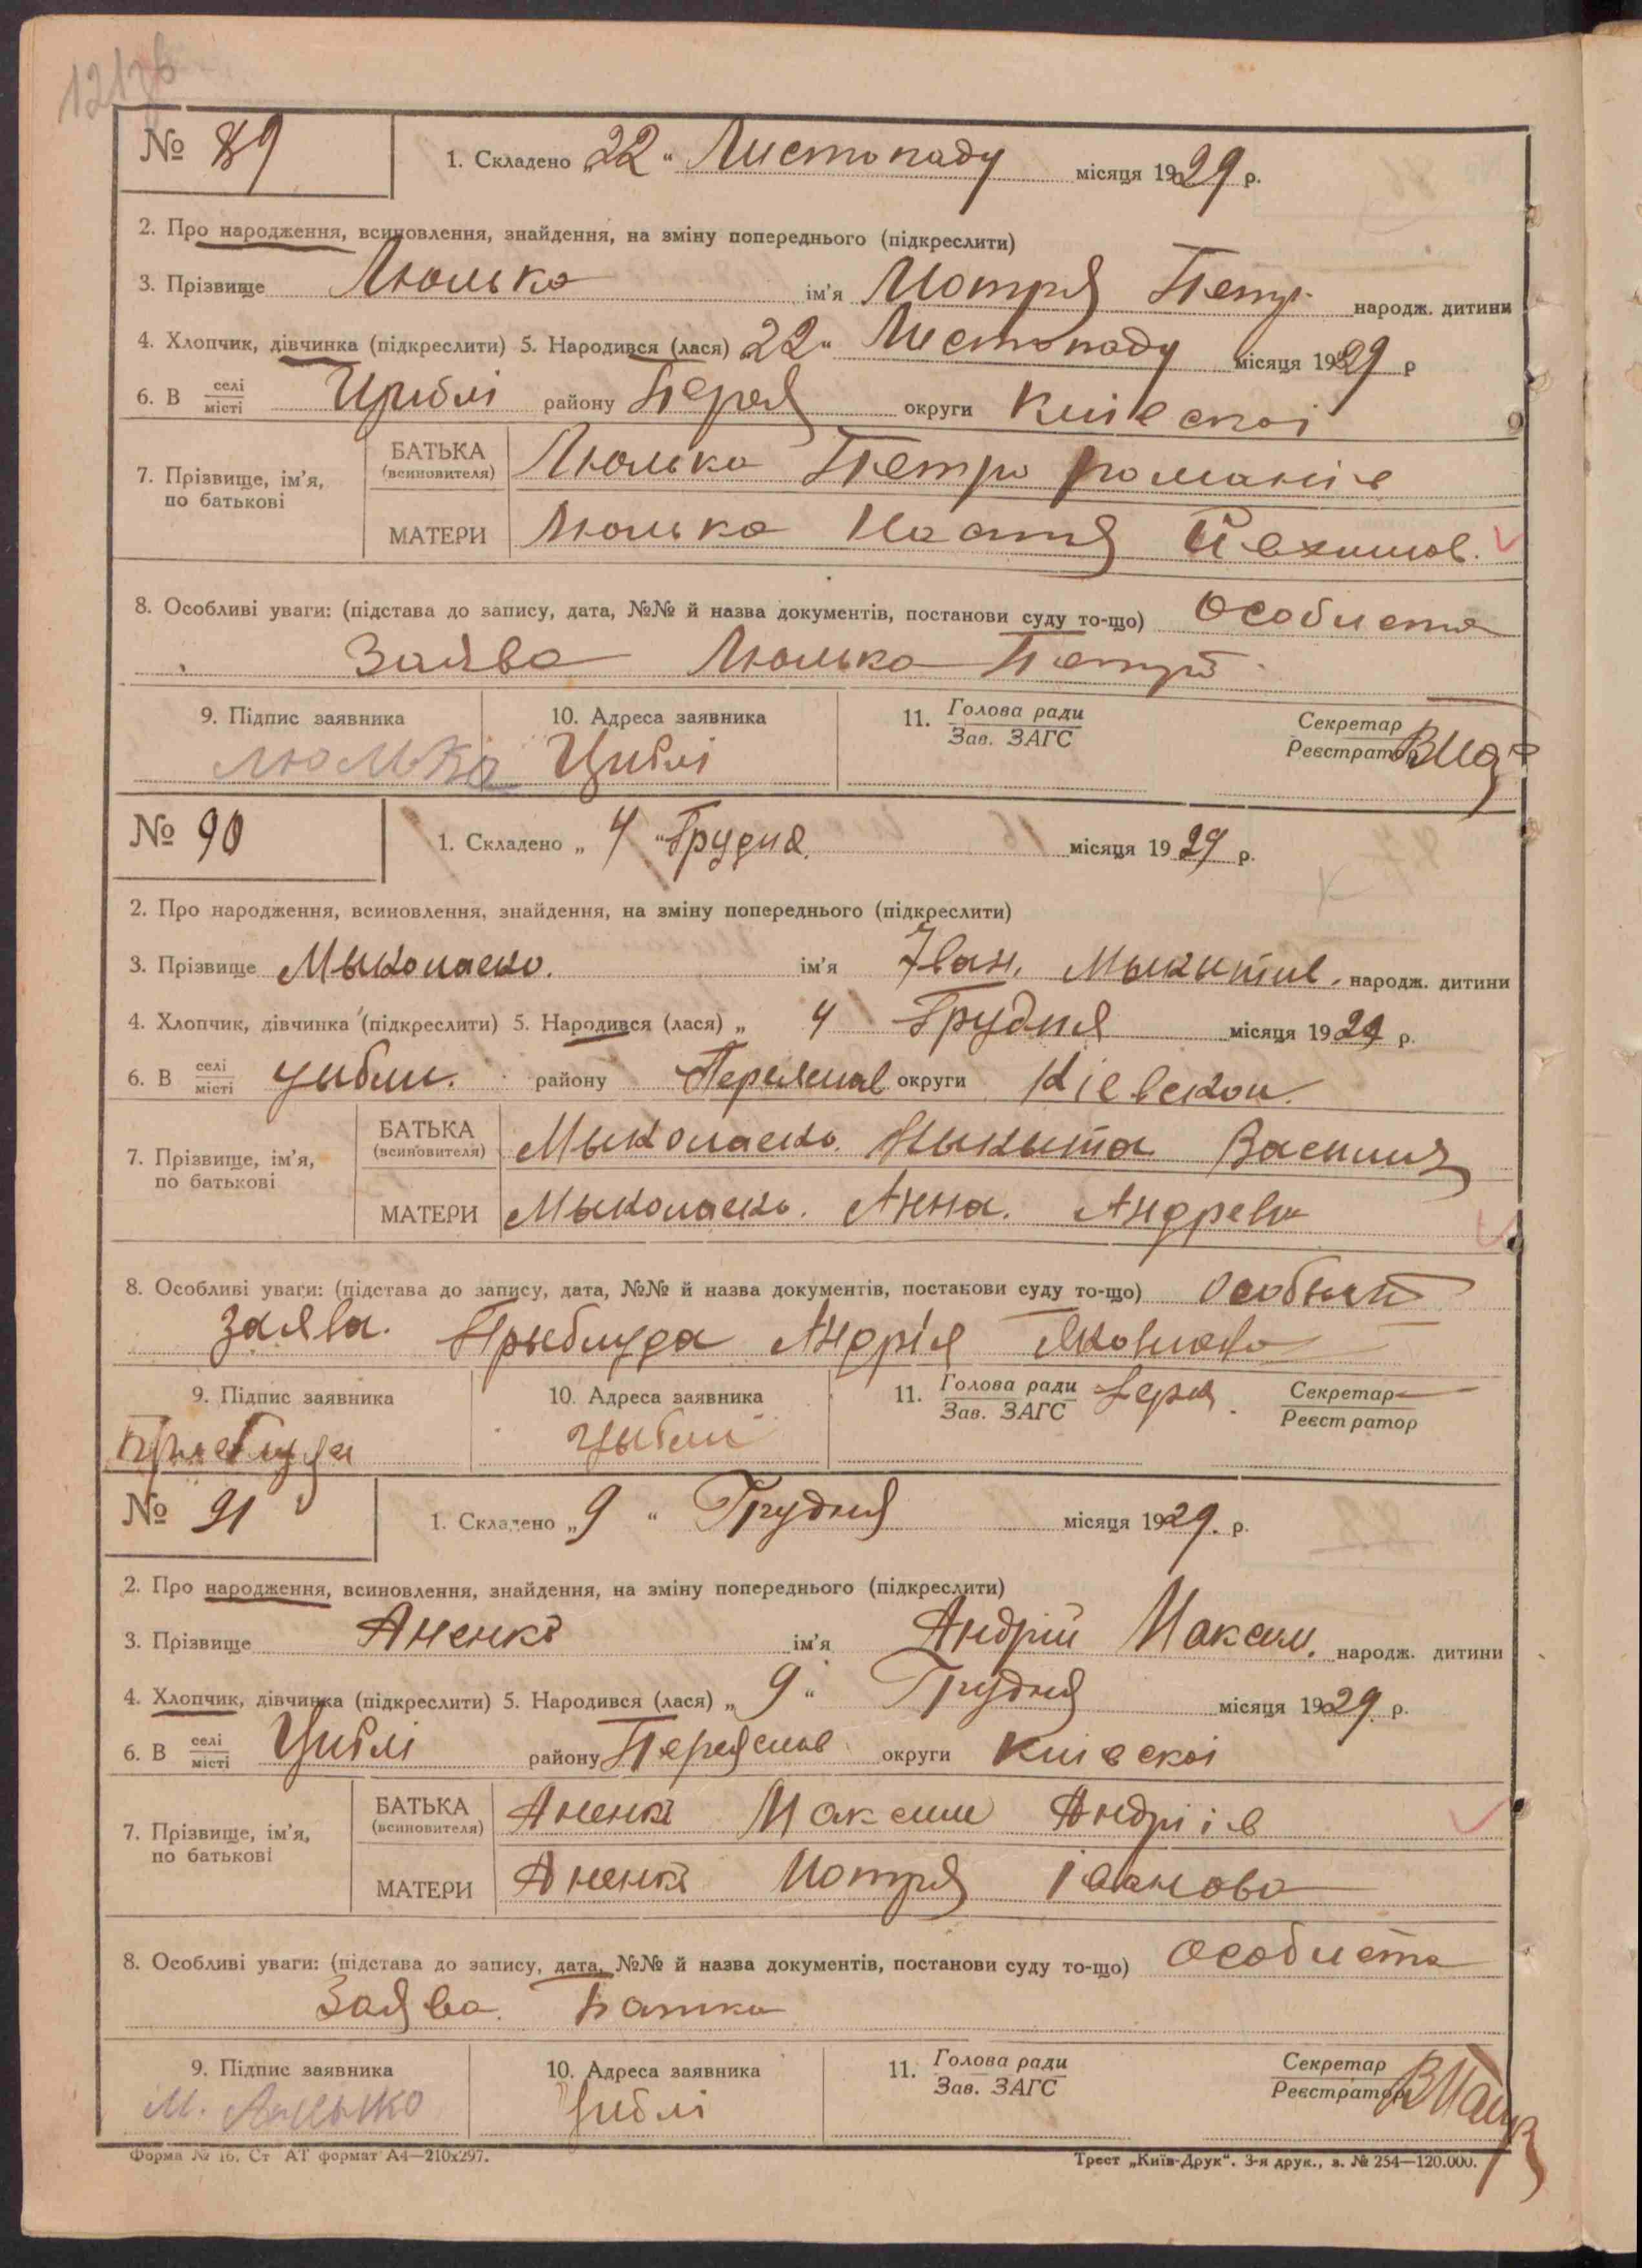 121зв
№ 89
1. Складено „22“ Листопаду місяця 1929 р.
2. Про народження, всиновлення, знайдення, на зміну попереднього (підкреслити)
3. Прізвище Люлька ім’я Мотря Петр. народж. дитини
4. Хлопчик, дівчинка (підкреслити) 5. Народився (лася) „22“ Листопаду місяця 1929 р
6. В селі/місті Циблі району Переяс округи Киівскоі
7. Прізвище, ім’я, по батькові
БАТЬКА (всиновителя) Люлька Петро Романів
МАТЕРИ Люлька Настя Йехимов.
8. Особливі уваги: (підстава до запису, дата, №№ й назва документів, постанови суду то-що) Особиста
Заява Люлька Петро
9. Підпис заявника 10. Адреса заявника 11. Голова ради / Зав. ЗАГС Секретар / Реєстратор
Люлька Циблі
№ 90
1. Складено „ 4 “ Грудня. місяця 1929 р.
2. Про народження, всиновлення, знайдення, на зміну попереднього (підкреслити)
3. Прізвище Мыколаєко. ім’я Іван. Мыкытив. народж. дитини
4. Хлопчик, дівчинка (підкреслити) 5. Народився (лася) „ 4 Грудня місяця 1929 р.
6. В селі/місті Цыбли. району Переяслав округи Кіевскои.
7. Прізвище, ім’я, по батькові
БАТЬКА (всиновителя) Мыколаєко. Мыкыта Васили
МАТЕРИ Мыколаєко. Анна. Андрева
8. Особливі уваги: (підстава до запису, дата, №№ й назва документів, постанови суду то-що) Особыст
Заява. Прыблуда Андрія
9. Підпис заявника 10. Адреса заявника 11. Голова ради / Зав. ЗАГС Секретар / Реєстратор
Приблуда Цыбли
№ 91
1. Складено „9 “ Грудня місяця 1929. р.
2. Про народження, всиновлення, знайдення, на зміну попереднього (підкреслити)
3. Прізвище Аненко ім’я Андрій Максим. народж. дитини
4. Хлопчик, дівчинка (підкреслити) 5. Народився (лася) „ 9 “ Грудня місяця 1929. р.
6. В селі/місті Циблі району Переяслав округи Киівскоі
7. Прізвище, ім’я, по батькові
БАТЬКА (всиновителя) Аненко Максим Андріів
МАТЕРИ Аненко Мотря Іванова
8. Особливі уваги: (підстава до запису, дата, №№ й назва документів, постанови суду то-що) Особиста
Заява. Батька
9. Підпис заявника 10. Адреса заявника 11. Голова ради / Зав. ЗАГС Секретар / Реєстратор
М. Циблі
Форма № 16. Ст АТ формат А4—210х297. Трест „Київ-Друк“. 3-я друк., з. № 254—120.000.